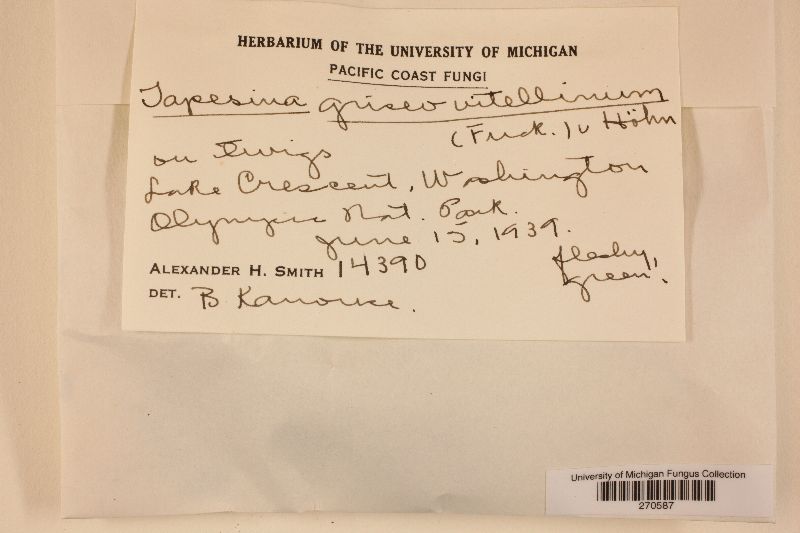 HERBARIUM OF THE UNIVERSITY OF MICHIGAN
PACIFIC COAST FUNGI
Tapesina griseo vitellinum
(Fuck.) v Höhn
on twigs
Lake Crescent, Washington
Olympic Nat. Park.
June 15, 1939.
ALEXANDER H. SMITH 14390
fleshy,
green.
DET. B Kanouse.
University of Michigan Fungus Collection
270587